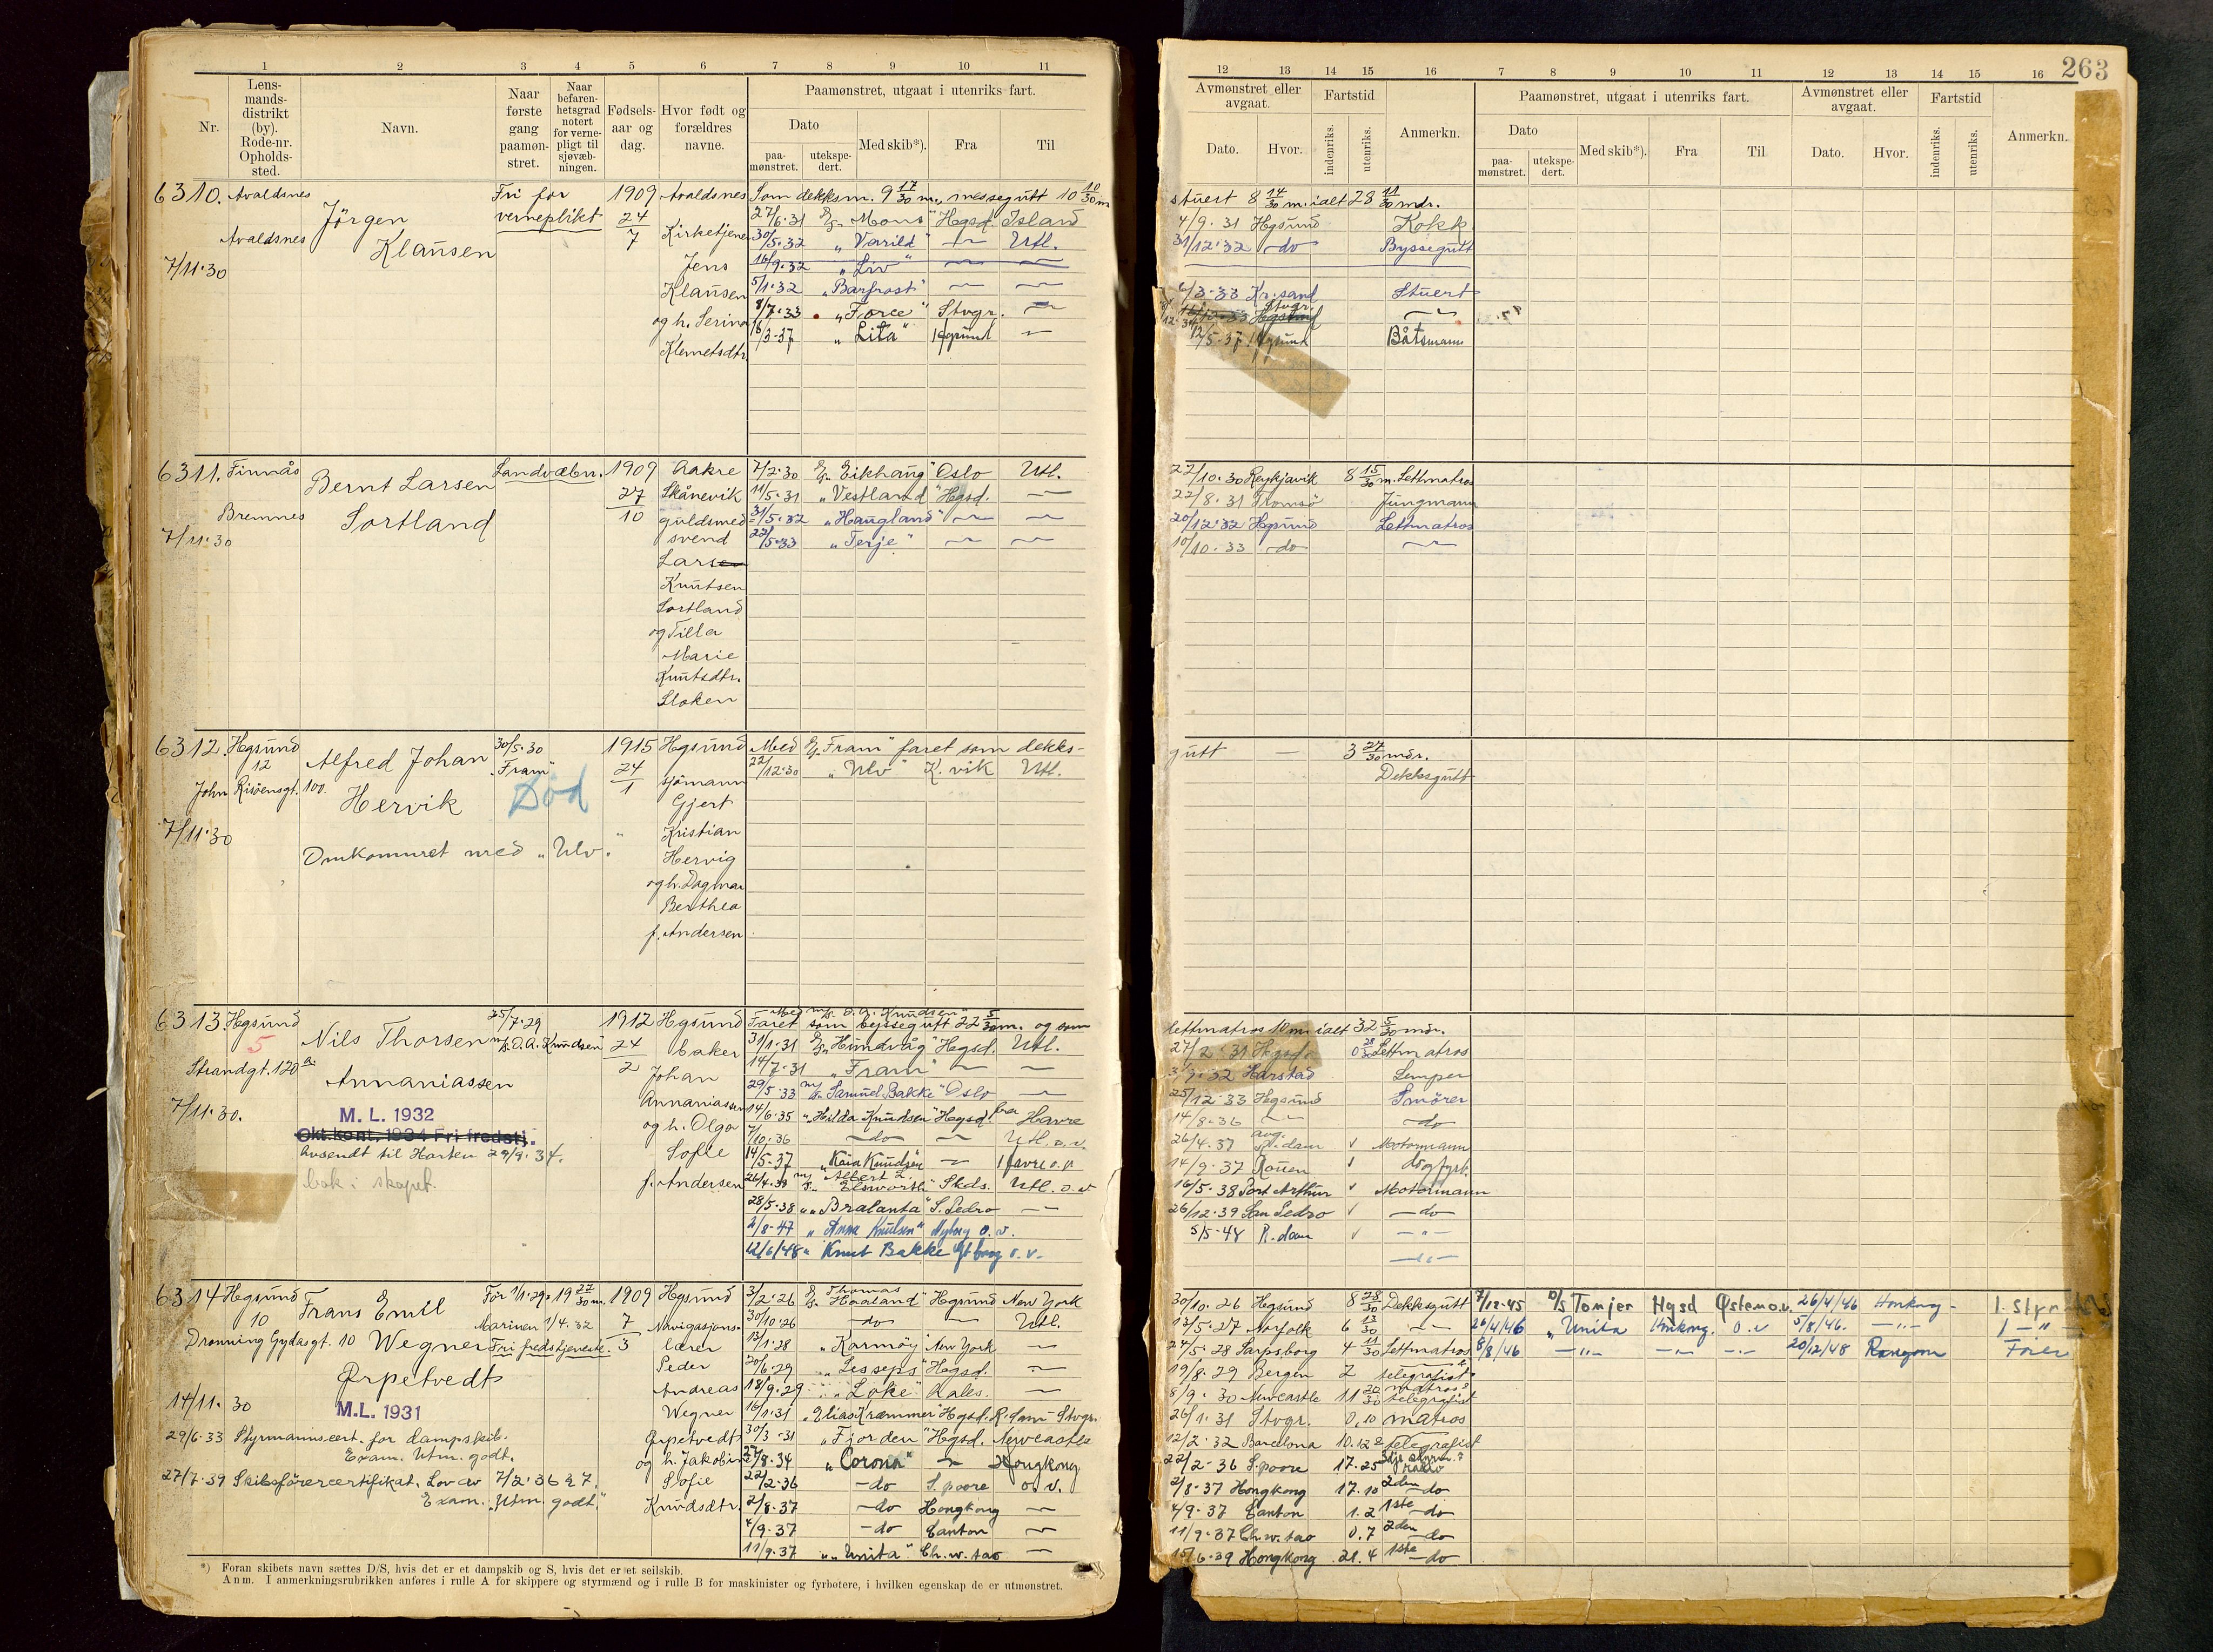 263
1 2 3 4 5 6 7 8 9 10 11
12 13 14 15 16 7 8 9 10 11 12 13 14 15 16
Nr.
Lens-
mands-
distrikt
(by).
Rode-nr.
Opholds-
sted.
Navn.
Naar
første
gang
paamøn-
stret.
Naar
befaren-
hetsgrad
notert
for verne-
pligt til
sjøvæb-
ningen.
Fødsels-
aar og
dag.
Hvor født og
forældres
navne.
Paamønstret, utgaat i utenriks fart.
Dato
paa-
mønstret.
utekspe-
dert.
Med skib*).
Fra
Til
Avmønstret eller
avgaat.
Dato.
Hvor.
Fartstid
indenriks.
utenriks.
Anmerkn.
Paamønstret, utgaat i utenriks fart.
Dato
paa-
mønstret.
utekspe-
dert.
Med skib*).
Fra
Til
Avmønstret eller
avgaat.
Dato.
Hvor.
Fartstid
indenriks.
utenriks.
Anmerkn.
6310. Avaldsnes
Avaldsnes
7/11.30
Jørgen
Klausen
Fri for
verneplikt
1909
24
7
Avaldsnes
Kirketjener
Jens
Klausen
og h. Serina
Klemetsdtr
Som dekksm. 9 17/30 m., messegutt 10 10/30 m
stuert 8 14/30 m. ialt 28 11/30 mdr.
27/6.31 "Mons" Hegsd. Island 4/9.31 Hgsund Kokk
30/5.32 "Varild" — Utl. 31/12.32 do Byssegutt
16/9.32 "Liv" — —
5/1.32 "Barfrost" — — 6/3-33 Kr.sand Stuert
8/7.33 "Force" Stvgr. — Stvgr.
16/3-37 "Lita" Hgsund — 12/5-37 Hgsund Båtsmann
6311. Finnås
Bremnes
7/11.30
Bernt Larsen
Sortland
Landvæbn.
1909
27
10
Aakre
Skånevik
guldsmed
svend
Larsen
Knutsen
Sortland
og Tilla
Marie
Knutsdtr.
Sloken
7/2.30 "Eikhaug" Oslo Utl. 22/10.30 Reykjavik 8 15/30 m. Lettmatros
11/5.31 "Vestland" Hgsd. — 22/8.31 Tromsø Jungmann
31/5.32 "Haugland" — — 20/12.32 Hgsund Lettmatros
22/5.33 "Terje" — — 10/10.33 do —
6312. Hgsund
12
John Risøensgt. 100.
7/11.30
Alfred Johan
Hervik
30/5.30
"Fram"
Død
Omkommet med "Ulv".
1915
24
1
Hgsund
sjømann
Gjert
Kristian
Hervig
og h. Dagmar
Berthea
f. Andersen
Med "Fram" faret som dekks-
gutt — 3 27/30 mdr.
22/12.30 "Ulv" K. vik Utl. Dekksgutt
6313. Hgsund
5
Strandgt. 120 a.
7/11.30.
Nils Thorsen
Annaniassen
M. L. 1932
Okt.kont. 1934 Fri fredstj.
Avsendt til Horten 29/9.34.
bak i skapet.
25/7.29
O.A. Knudsen
1912
24
2
Hgsund
baker
Johan
Annaniassen
og h. Olga
Sofie
f. Andersen
Med O.A. Knudsen
Faret som byssegutt 22 5/30 m. og som
lettmatros 10 m. ialt 32 5/30 mdr.
31/1.31 "Hundvåg" Hgsd. Utl. 27/2.31 Hgsd. 0 28/30 Lettmatros
14/7.31 "Fram" — — Harstad Lemper
29/5.33 "Samuel Bakke" Oslo — 25/12.33 Hgsund Smører
14/6.35 "Hilda Knudsen" Hgsd. fra Havre 14/8-36 — do
7/10.36 do — Utl. o.v. 26/4.37 R.dam v Motormann
14/5-37 "Kaia Knudsen" — Havre o.v. 14/9.37 Rouen v
26/4.38 "Albert L. Elsworth" Skds. Utl. o.v. 16/5-38 Port Arthur v Motormann
28/5-38 "Bralanta" S. Pedro — 26/12.39 San Pedro v do
2/8-47 "Anna Knudsen" Nyborg o.v. 5/5-48 R.dam v —"—
12/6/48 " Knut Bakke Gtborg o.v. —"—
6314 Hgsund
10
Dronning Gydasgt. 10
14/11.30
Frans Emil
Wegner
Ørpetvedt
M.L. 1931
29/6.33 Styrmannscert. for dampskib.
Exam. Utm. godt.
27/7.39 Skibsførercertifikat. Lov av 7/2.36 § 7.
Exam. "Utm. godt."
Før 1/1.29: 19 27/30 m.
Marinen 1/4.32
Fri fredstjeneste.
1909
7
3
Hgsund
Navigasjons-
lærer
Peder
Andreas
Wegner
Ørpetvedt
og h. Jakobine
Sofie
Knudsdtr.
3/2.26 "Thomas Haaland" Hgsund New York 30/10.26 Hgsund 8 28/30 Dekksgutt
30/10.26 do — Utl. 13/5.27 Norfolk 6 13/30 —
13/1.28 "Karmøy" New York — 24/5.28 Sarpsborg 4 11/30 Lettmatros
20/6.29 "Lesseps" Hgsd. — 19/8.29 Bergen 2 telegrafist
18/9.29 "Loke" Kales. — 8/9.30 Newcastle 11 20/30 matros telegrafist
16/1.31 "Elias Kræmmer" Hgsd. R.dam-Stvgr. 26/1.31 Stvgr. 0,10 matros
30/3-31 "Fjorden" Hgsd. Newcastle 12/2.32 Barcelona 10.12 telegrafist
27/8.34 "Corona" — Hongkong 22/2-36 S.poore 17.25
22/2-36 do S.poore o.v. 2/8-37 Hongkong 17.10 2den do
2/8-37 do Hongkong — 4/9.37 Canton 1.2 1ste do
4/9.37 do Canton — 11/9.37 Ch.w.tao 0.7 2den do
11/9.37 "Unita" Ch.w.tao — 15/6.39 Hongkong 21.4 1ste do
7/12-45 D/S Tonjer Hgsd Østen o.v. 26/4/46 Honkong 1. Styrm
26/4/46 " Unita Honkong. o.v 5/8/46. —"— 1 —"—
8/8/46 —"— —"— —"— 20/12/48 Rangoon Fører
*) Foran skibets navn sættes D/S, hvis det er et dampskib og S, hvis det er et seilskib.
Anm. I anmerkningsrubrikken anføres i rulle A for skippere og styrmænd og i rulle B for maskinister og fyrbøtere, i hvilken egenskap de er utmønstret.